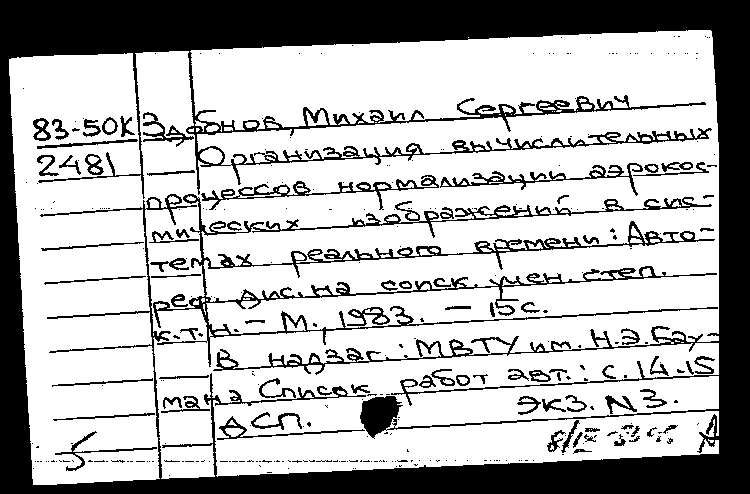 83-50К Здобнов, Михаил Сергеевич
2481 Организация вычислительных
процессов нормализации аэрокос-
мических изображений в сис-
темах реального времени: Авто-
реф. дис. на соиск. учен. степ.
к.т.н. - М., 1983. - 15 с.
В надзаг.: МВТУ им. Н.Э.Бау-
мана. Список работ авт.: с.14-15
ДСП. ЭКЗ. N3.
5